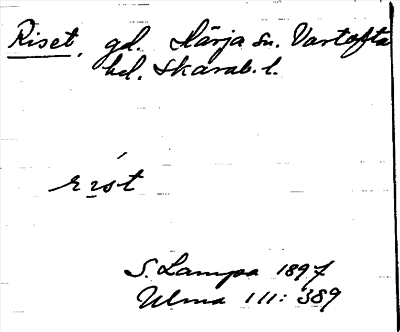 Riset, gd. Härja sn. Vartofta
hd. Skarab. l.
rı́st
S. Lampa 1897
Ulma 111: 389